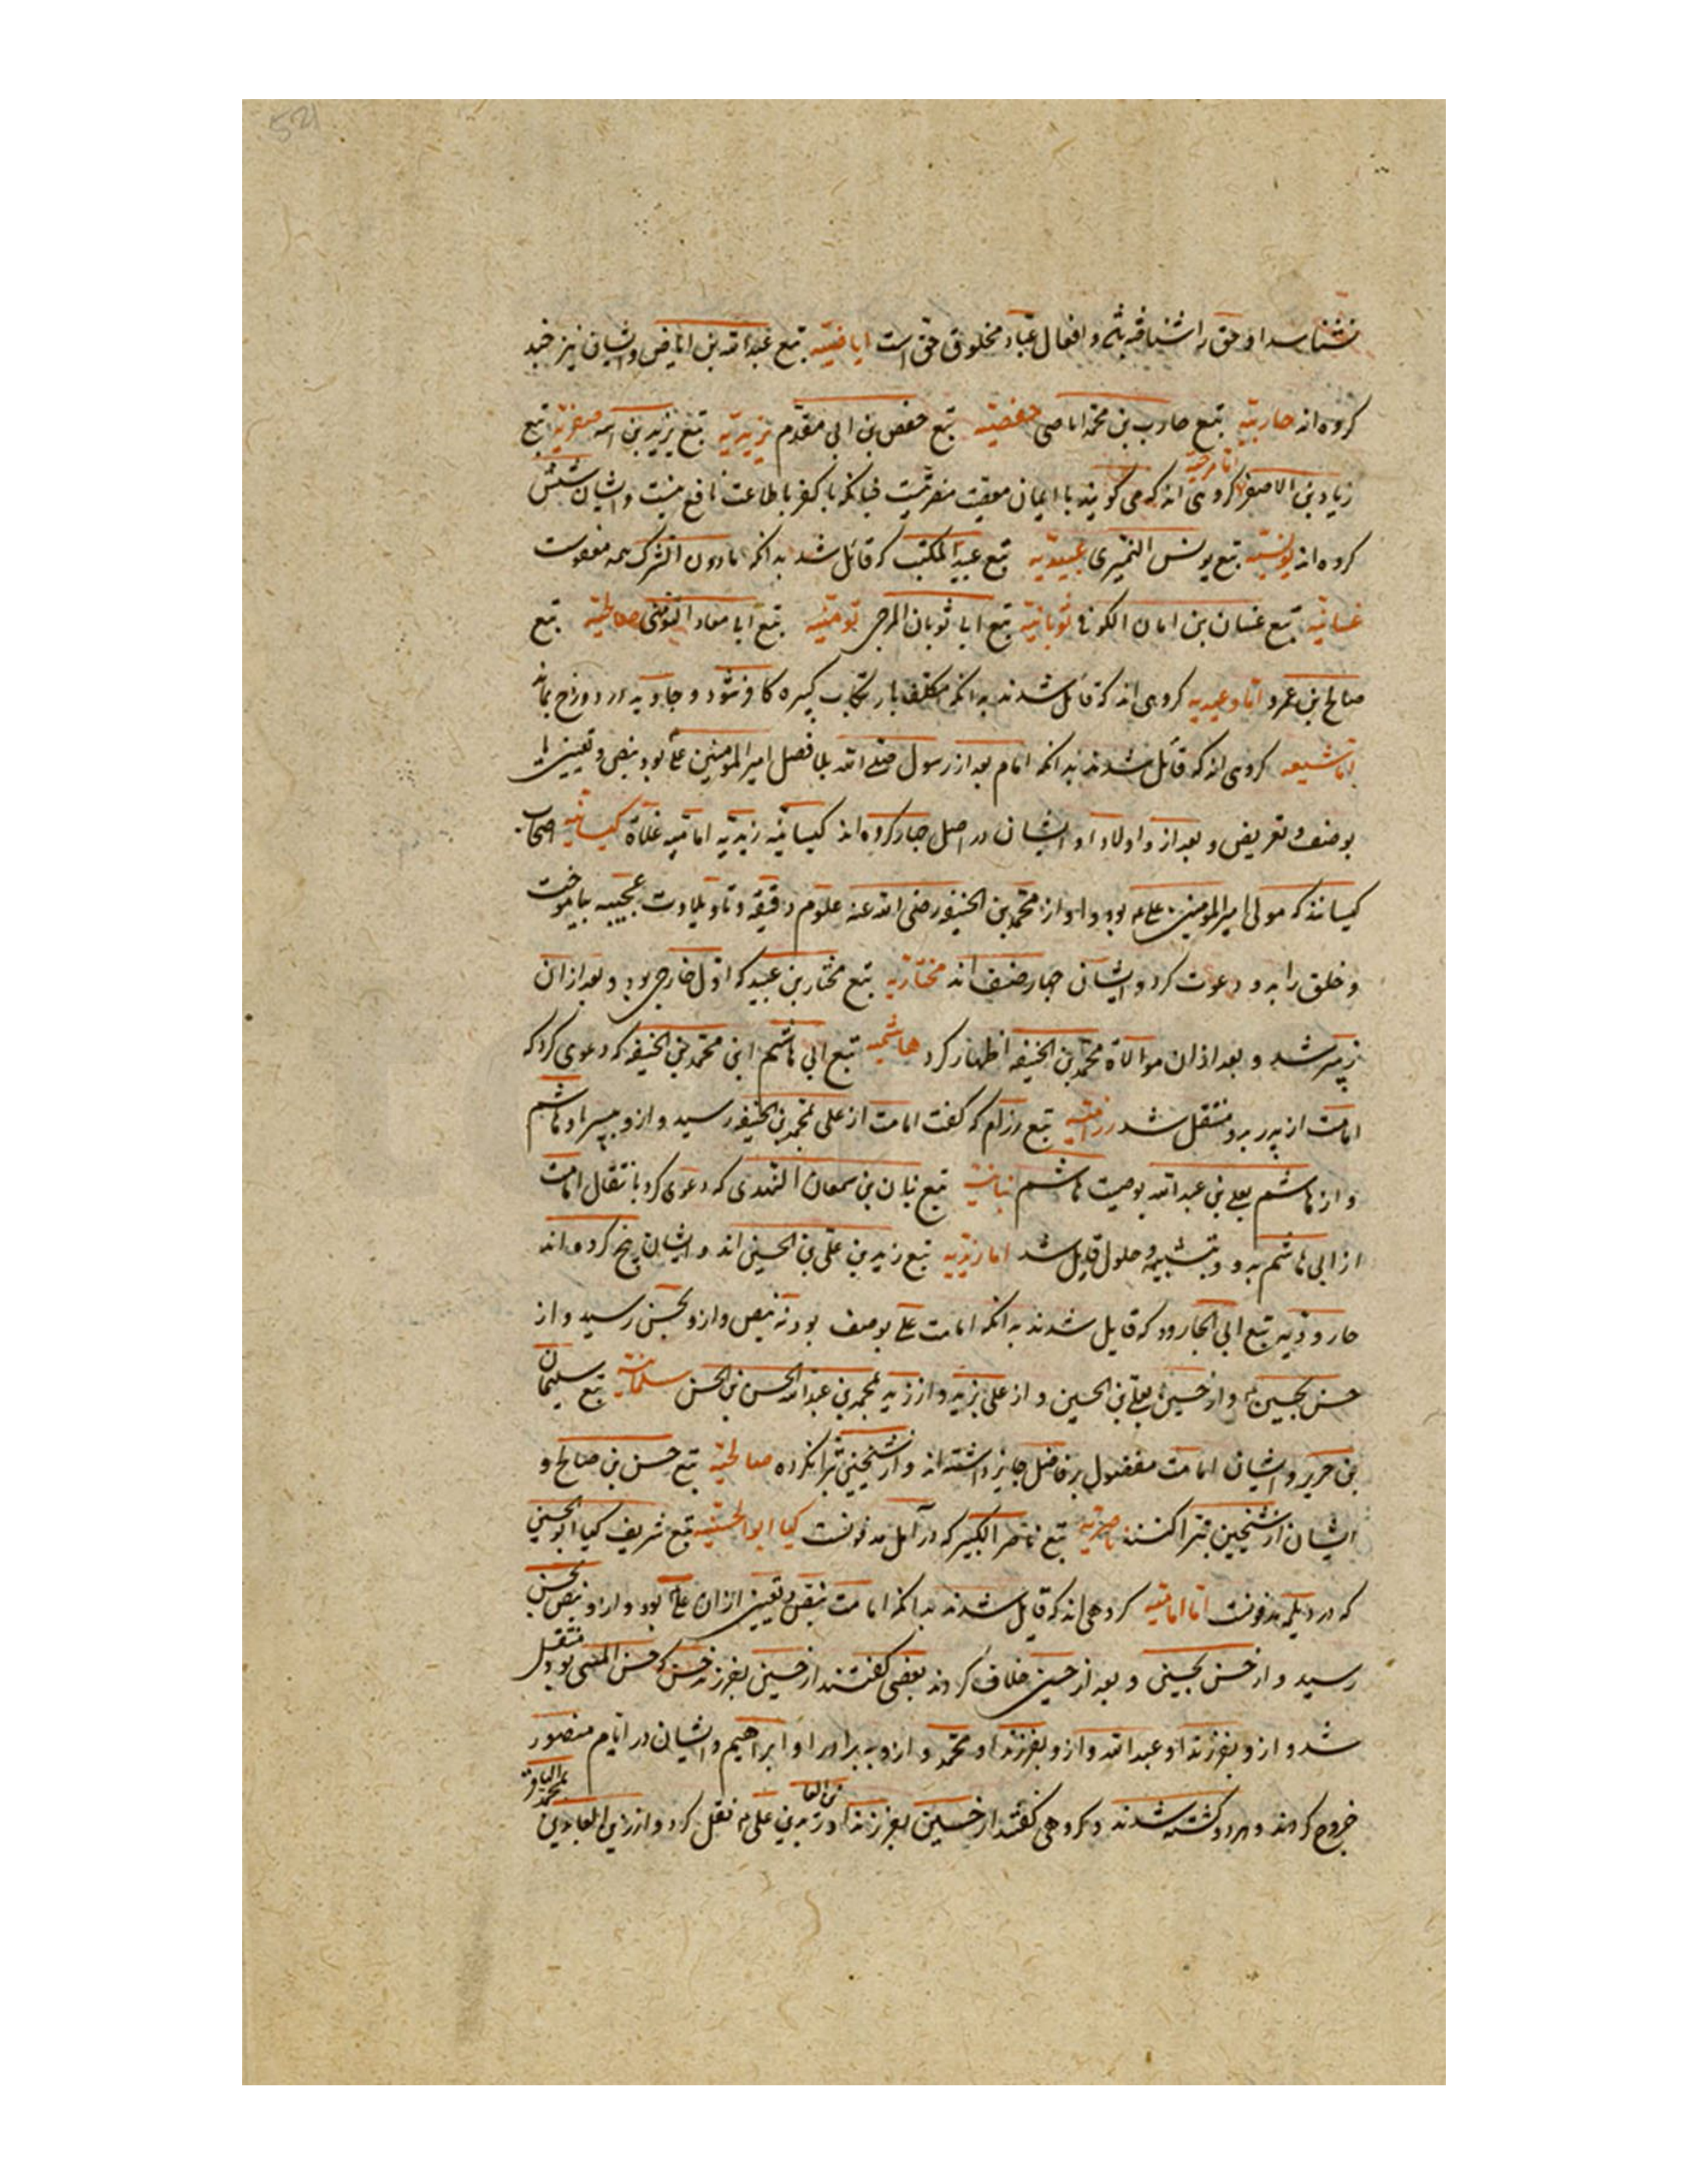 521
نشناسد او حق را شناخته باشد و افعال عباد مخلوق حق است اباضیه تبع عبدالله بن اباض و ایشان نیز چند
کروه اند حاربیه تبع حارب بن محمد اباضی حفصیه تبع حفص بن ابی مقدم یزیدیه تبع یزید بن انیسه صفریه تبع
زیاد بن الاصفر اما مرجیه کروهی اند که می کویند با ایمان معصیت مضر نیست چنانکه با کفر با طاعت نافع نیست و ایشان شش
کروه اند یونسیه تبع یونس النمیری عبیدیه تبع عبید المکتب که قائل شد به آنکه مادون الشرک همه معفوست
غسانیه تبع غسان بن ابان الکوفی ثوبانیه تبع ابی ثوبان المرجی تومنیه تبع ابی معاد التومنی صالحیه تبع
صالح بن عمرو اما وعیدیه کروهی اند که قائل شدند به انکه مکلف بارتکاب کبیره کافر شود و جاوید در دوزخ بماند
اما شیعه کروهی اند که قائل شدند بدانکه امام بعد از رسول صلی الله بلا فصل امیر المومنین علی بود بنص و تعیین یا
بوصف و تعریض و بعد از و اولاد او و ایشان در اصل چهار کروه اند کیسانیه زیدیه امامیه غلاة کیسانیه اصحاب
کیسانند که مولی امیر المومنین علی بود و او از محمد بن الحنیفه رضی الله عنه علوم دقیقه و تاویلات عجیبه بیاموخت
و خلق را بدو دعوت کرد و ایشان چهار صنف اند مختاریه تبع مختار بن عبید که اول خارجی بود و بعد از ان
زبیری شد و بعد از ان موالاة محمد بن الحنیفه اظهار کرد هاشمیه تبع ابی هاشم ابن محمد بن الحنیفه که دعوی کرد که
امامت از پدر بدو منتقل شد رزامیه تبع رزام که کفت امامت از علی بمحمد بن الحنیفه رسید و ازو بپسر او هاشم
و از هاشم بعلی بن عبدالله بوصیت هاشم بنانیه تبع بنان بن سمعان النهدی که دعوی کرد بانتقال امامت
از ابی هاشم بدو و بتشبیه و حلول قایل شد اما زیدیه تبع زید بن علی بن الحسین اند و ایشان پنج کروه اند
جارودیه تبع ابی الجارود که قایل شدند به انکه امامت علی بوصف بود نه بنص و ازو بحسن رسید و از
حسن بحسین و از حسین بعلی بن الحسین و از علی بزید و از زید بمحمد بن عبدالله الحسن بن الحسن سلمانیه تبع سلیمان
بن جریر و ایشان امامت مفضول بر فاضل جایز داشته اند و از شیخین تبرا نکرده صالحیه تبع حسن بن صالح و
ایشان از شیخین تبرا کنند ناصریه تبع ناصر الکبیر که در آمل مدفونست کیا ابوالحسنیه تبع شریف کیا ابوالحسین
که در دیلمه مدفونست اما امامیه کروهی اند که قایل شدند بدانکه امامت بنص و تعیین ازان علی بود و ازو بنص بحسن
رسید و از حسن بحسین و بعد از حسین خلاف کردند بعضی کفتند از حسین بفرزند حسن که حسن المثنی بود منتقل
شد و ازو بفرزند او عبدالله و ازو بفرزند او محمد و ازو ببرادر او ابراهیم و ایشان در ایام منصور
خروج کردند و هردو کشته شدند و کروهی کفتند از حسین بفرزند او زین العا بدین علی نقل کرد و از زین العابدین بمحمد الباقر